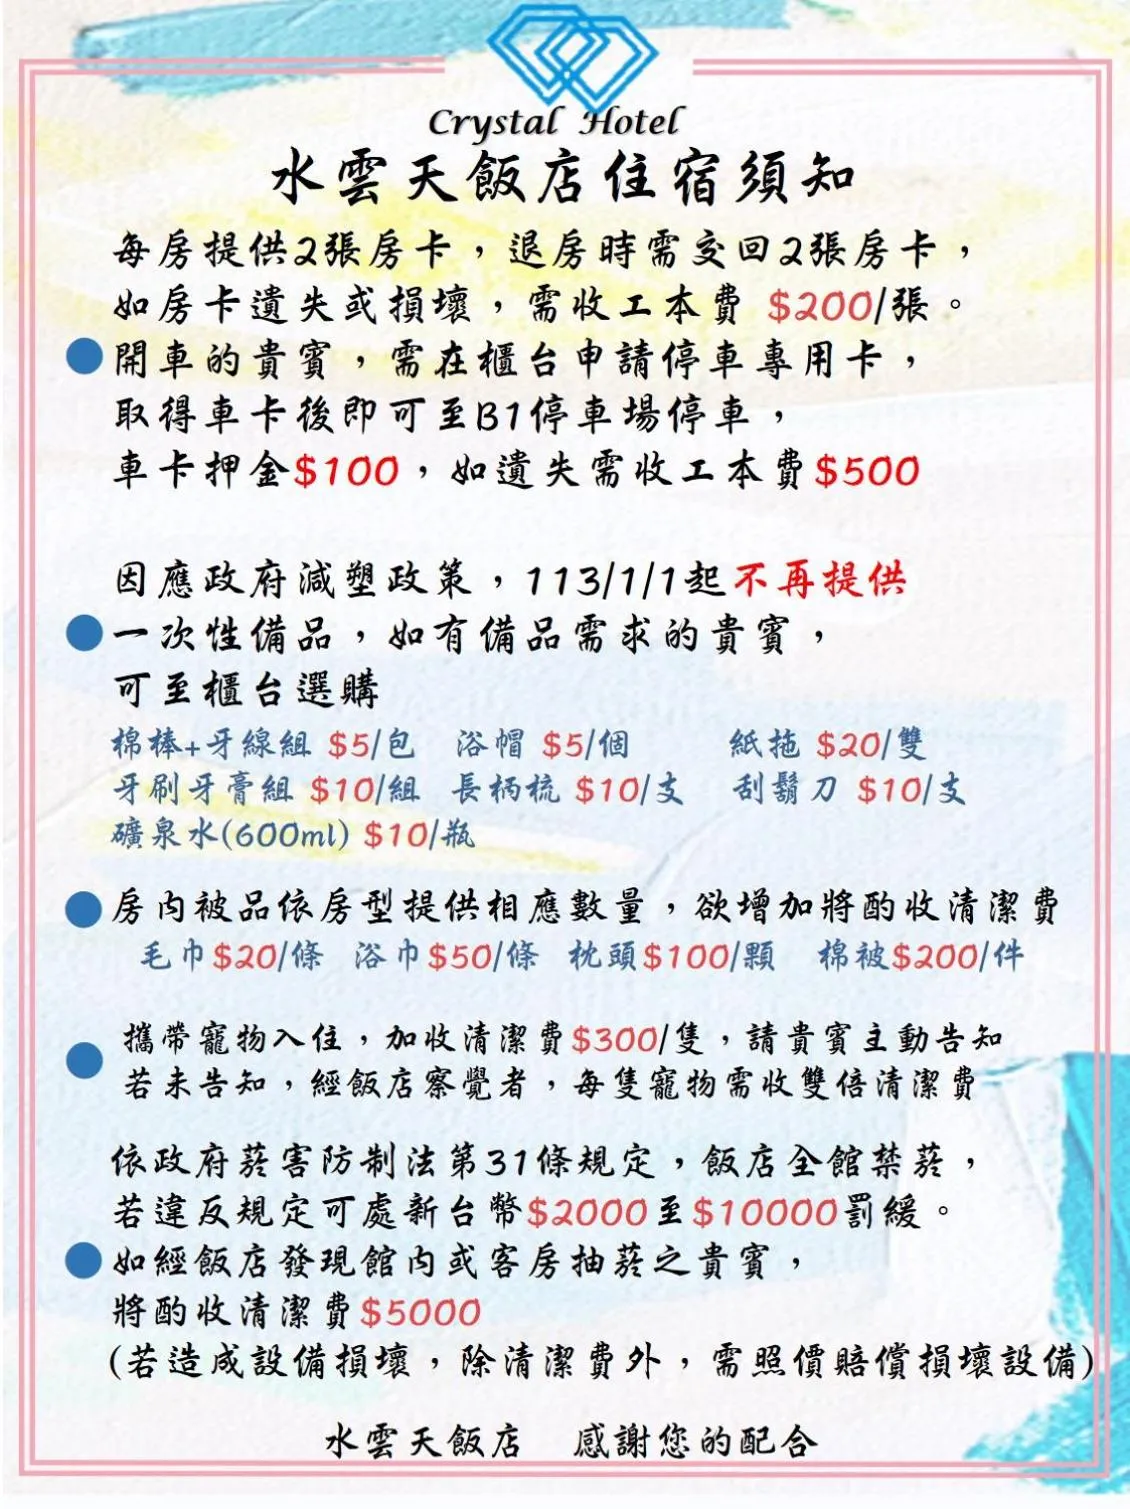 Crystal Hotel
水雲天飯店住宿須知
每房提供2張房卡，退房時需交回2張房卡，
如房卡遺失或損壞，需收工本費 $200/張。
開車的貴賓，需在櫃台申請停車專用卡，
取得車卡後即可至B1停車場停車，
車卡押金$100，如遺失需收工本費$500
因應政府減塑政策，113/1/1起不再提供
一次性備品，如有備品需求的貴賓，
可至櫃台選購
棉棒+牙線組 $5/包 浴帽 $5/個 紙拖 $20/雙
牙刷牙膏組 $10/組 長柄梳 $10/支 刮鬍刀 $10/支
礦泉水(600ml) $10/瓶
房內被品依房型提供相應數量，欲增加將酌收清潔費
毛巾$20/條 浴巾$50/條 枕頭$100/顆 棉被$200/件
攜帶寵物入住，加收清潔費$300/隻，請貴賓主動告知
若未告知，經飯店察覺者，每隻寵物需收雙倍清潔費
依政府菸害防制法第31條規定，飯店全館禁菸，
若違反規定可處新台幣$2000至$10000罰緩。
如經飯店發現館內或客房抽菸之貴賓，
將酌收清潔費$5000
(若造成設備損壞，除清潔費外，需照價賠償損壞設備)
水雲天飯店 感謝您的配合